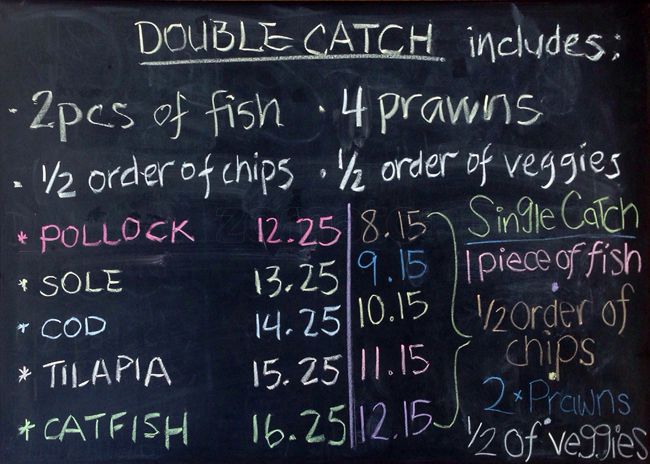 DOUBLE CATCH includes:
· 2pcs of fish · 4 prawns
· 1/2 order of chips · 1/2 order of veggies
* POLLOCK 12.25 8.15
* SOLE 13.25 9.15
* COD 14.25 10.15
* TILAPIA 15.25 11.15
* CATFISH 16.25 12.15
Single Catch
1 piece of fish
·
1/2 order of
chips
·
2 * Prawns
1/2 of veggies